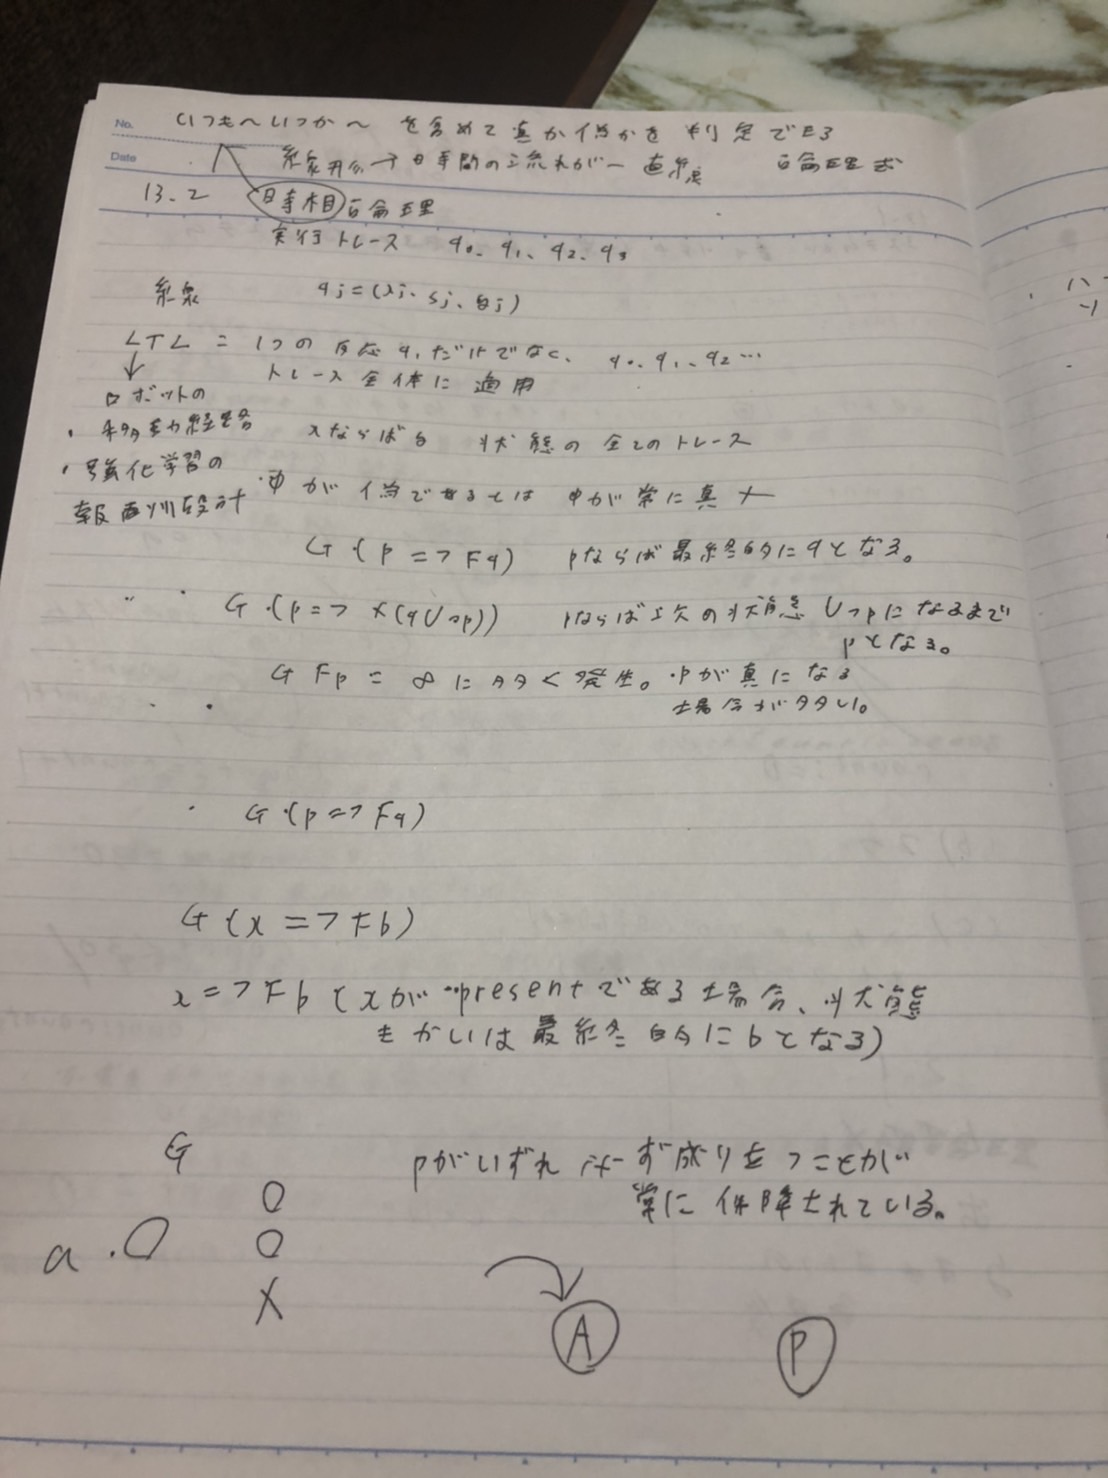 No.
いつも〜いつか〜 を含めて真か偽かを 判定できる
Date
線形 → 時間の流れが一直線 論理式
13.2 時相論理
実行トレース q0、q1、q2、q3
線形 qj=(xj、sj、yj)
LTL = 1つの反応q、だけでなく、 q0、q1、q2…
トレース全体に適用
↓
ロボットの
・移動経路 xならば 状態の全てのトレース
・強化学習の
報酬設計
・φが偽であるとは φが常に真 ×
G・(p => Fq) pならば最終的にqとなる。
G・(p => X(qU¬p)) pならば次の状態 U¬pになるまで
pとなる。
G Fp = ∞に多く発生。・pが真になる
場合が多い。
・ G・(p => Fq)
G(x => Fb)
x => Fb (xがpresentである場合、状態
もかいは最終的にbとなる)
G pがいずれ必ず成り立つことが
常に保障されている。
O
a . O O
X
A P